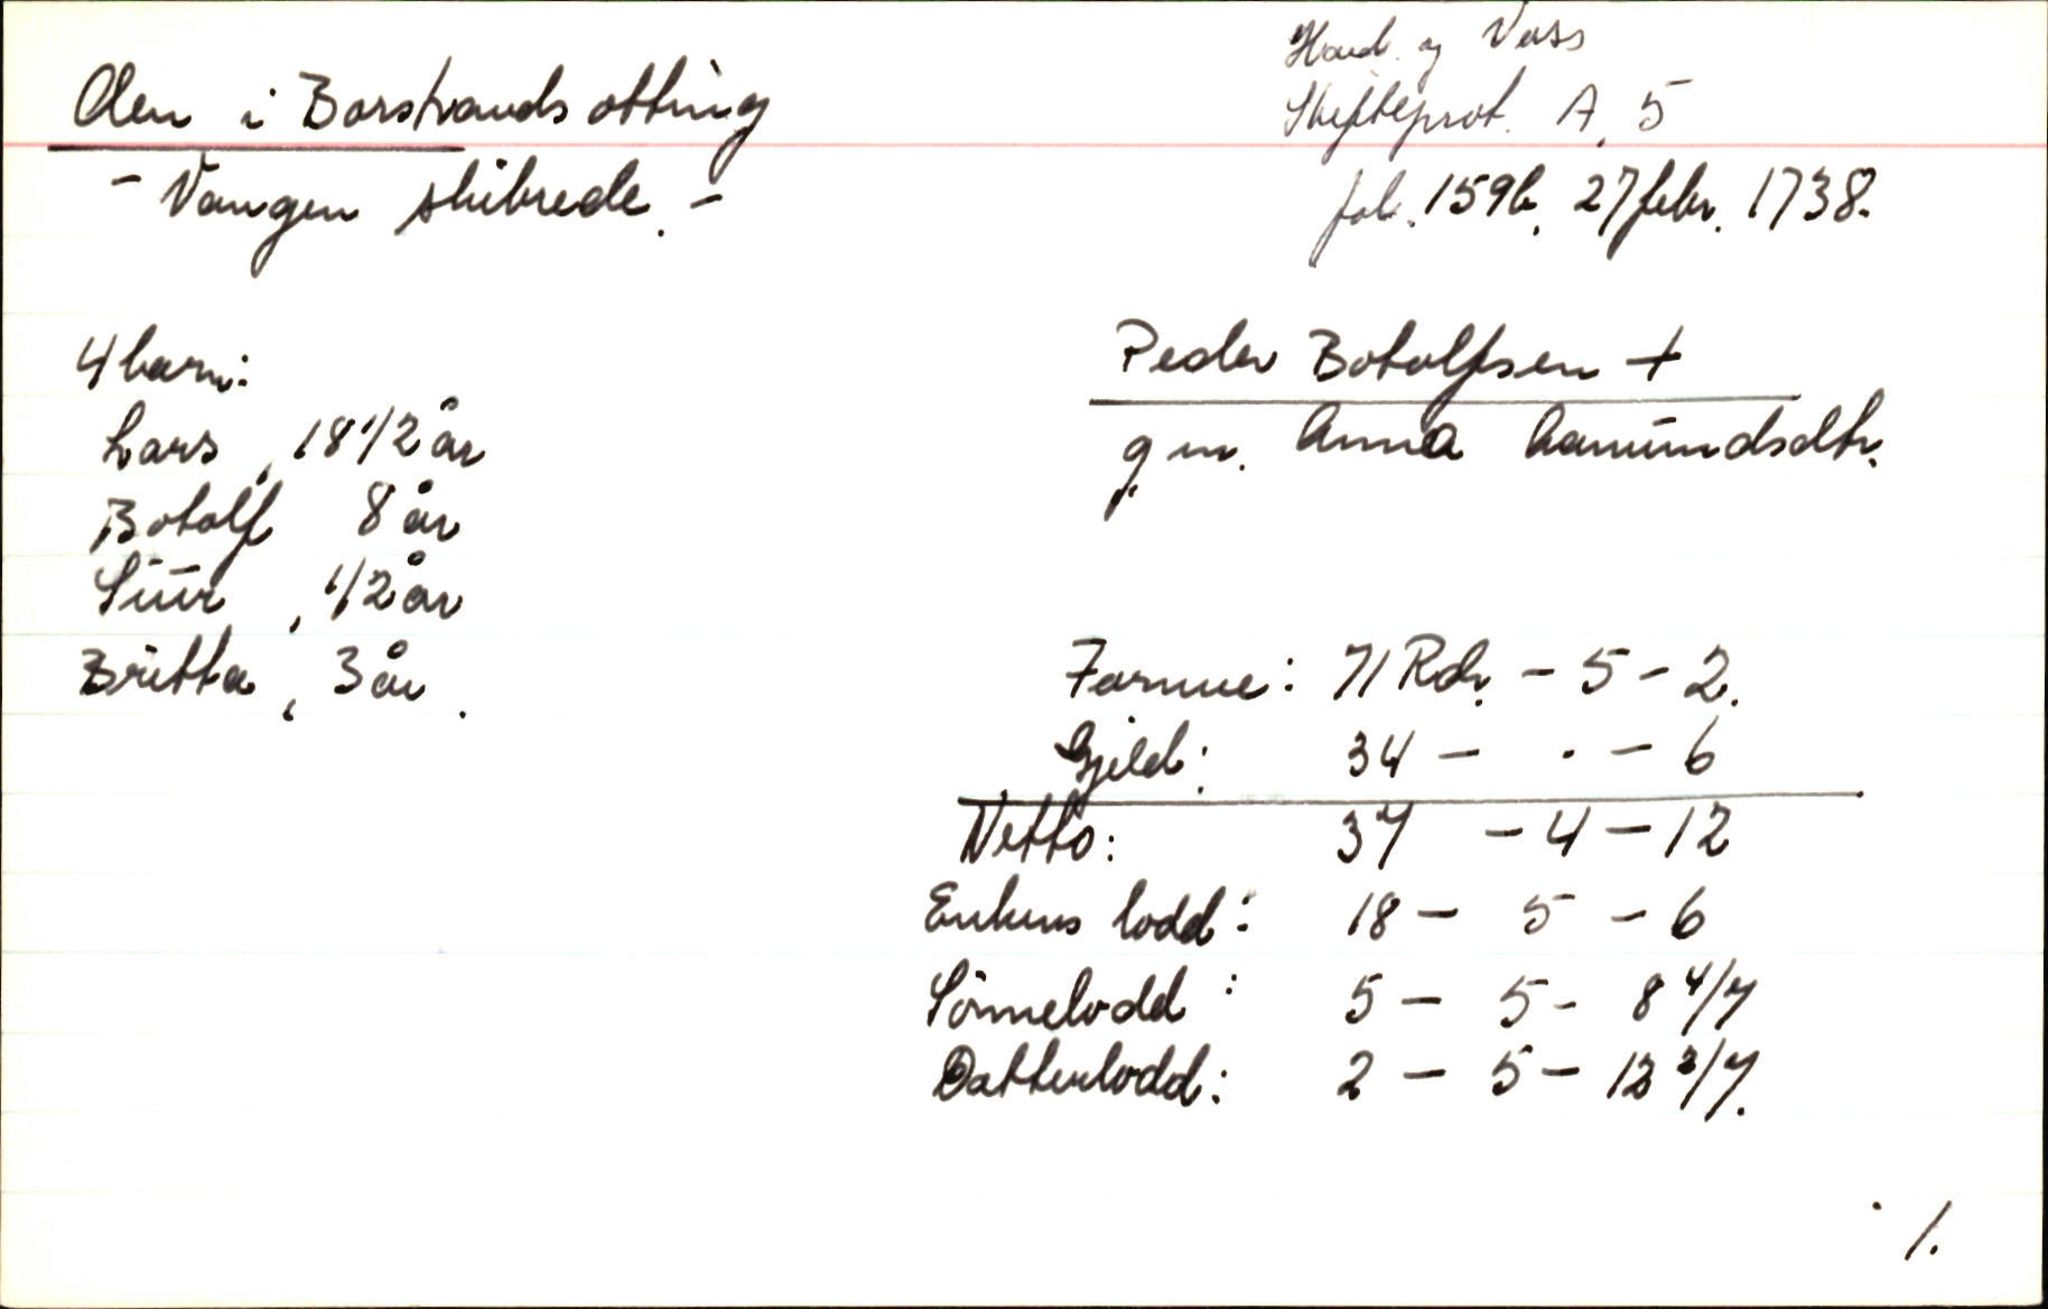 Olen i Borstrands otting
- Vangen skibrede. -
Hard. og Voss
Skifteprot. A, 5
fol. 159b, 27 febr. 1738.
4 barn:
Lars, 18 1/2 år
Botolf 8 år
Siur, 1/2 år
Britta, 3 år.
Peder Botolfsen +
g.m. Anna Aamundsdtr.
Formue: 71 Rdr. - 5 - 2.
Gjeld: 34 - . - 6
Netto: 37 - 4 - 12
Enkens lodd: 18 - 5 - 6
Sönnelodd: 5 - 5 - 8 4/7
Datterlodd: 2 - 5 - 12 2/7.
1.